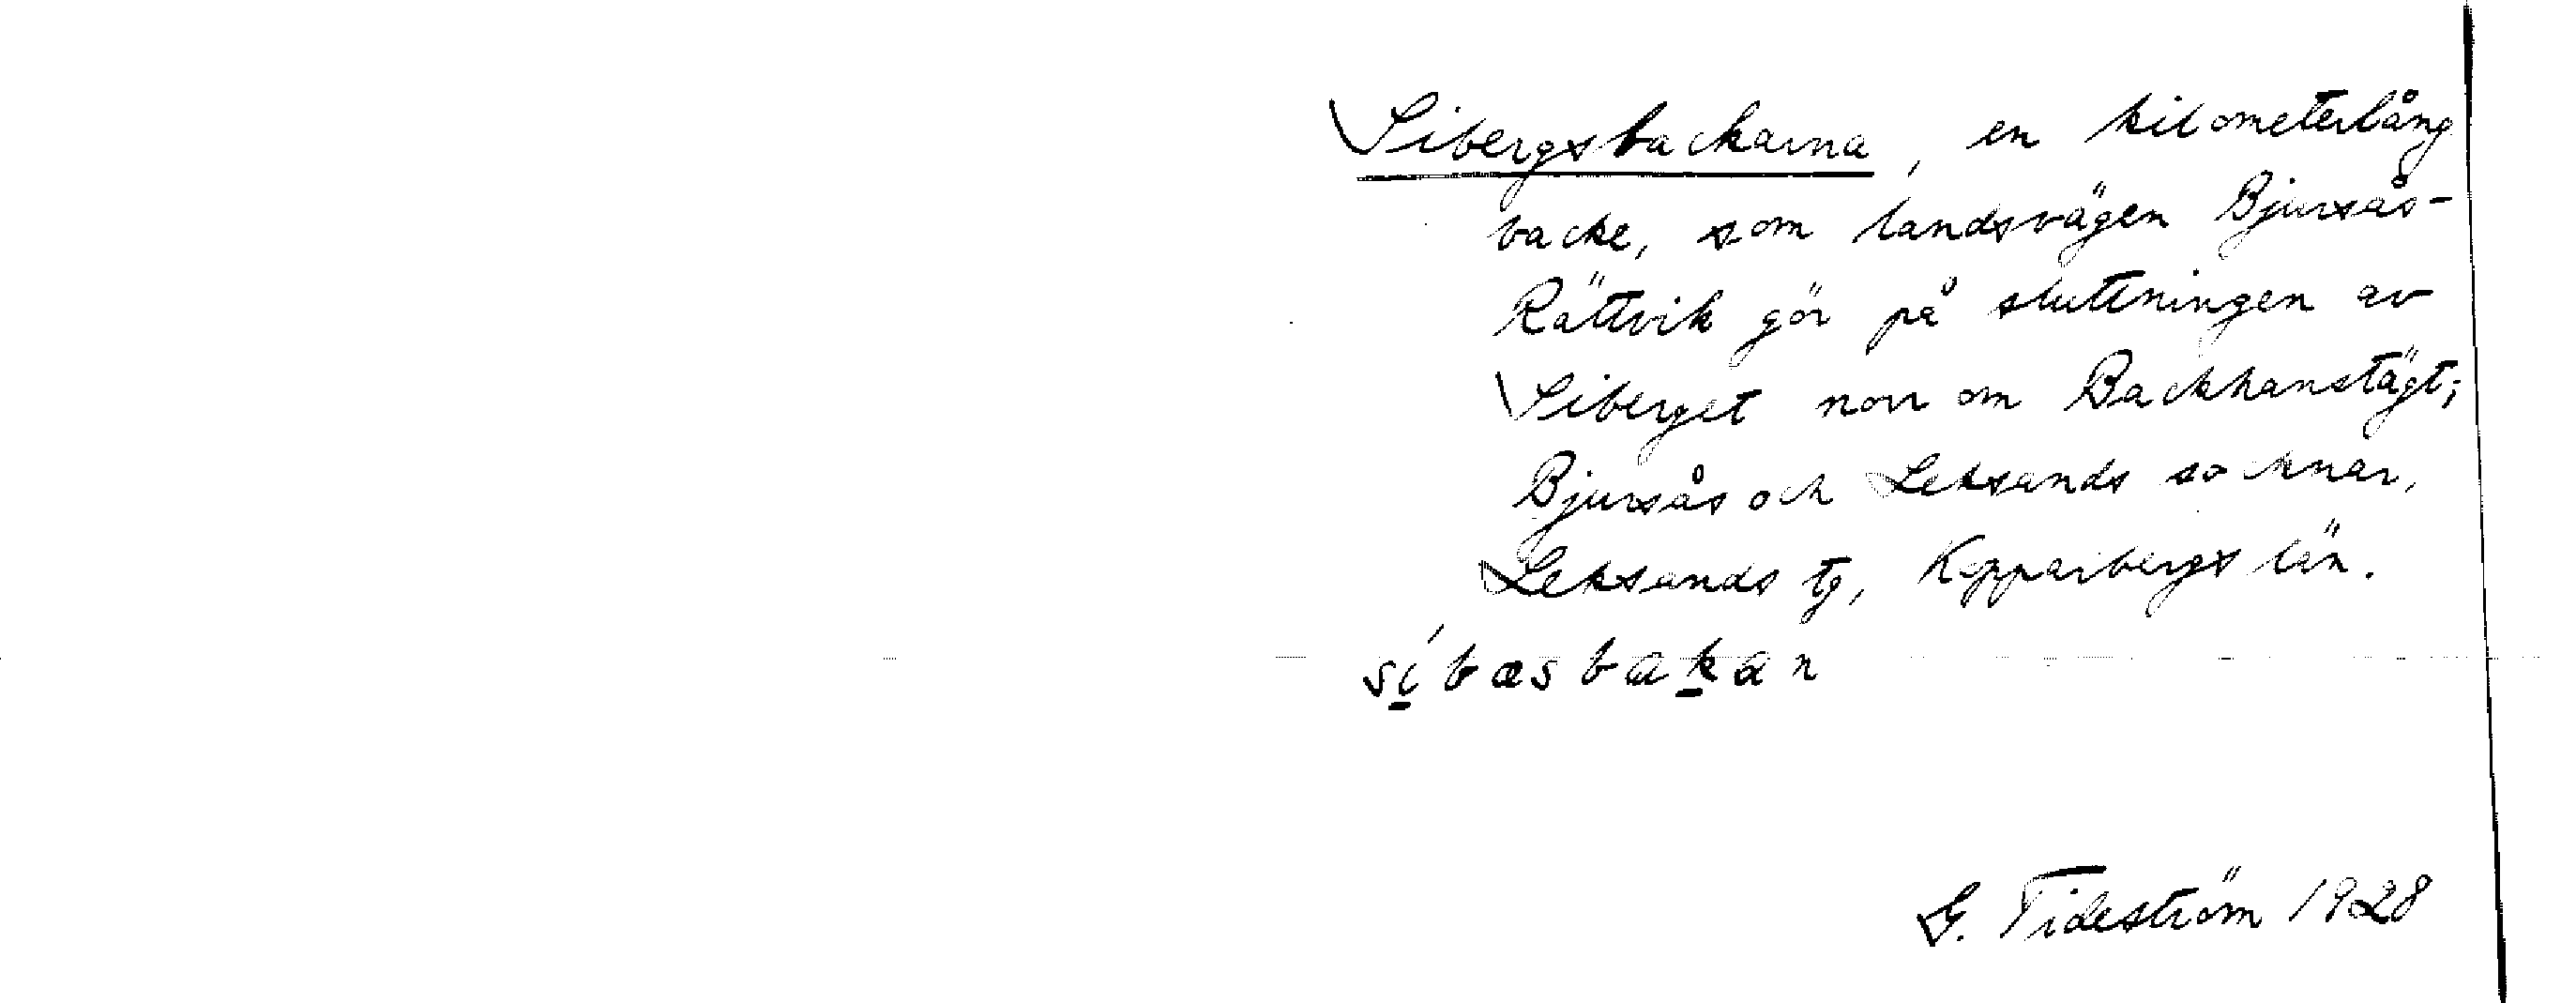 Sibergsbackarna, en kilometerlång
backe, som landsvägen Bjursås-
Rättvik gör på sluttningen av
Siberget norr om Backhanstägt;
Bjursås och Leksands socknar,
Leksands tg, Kopparbergs län.
síbæsbakan
G. Tideström 1928